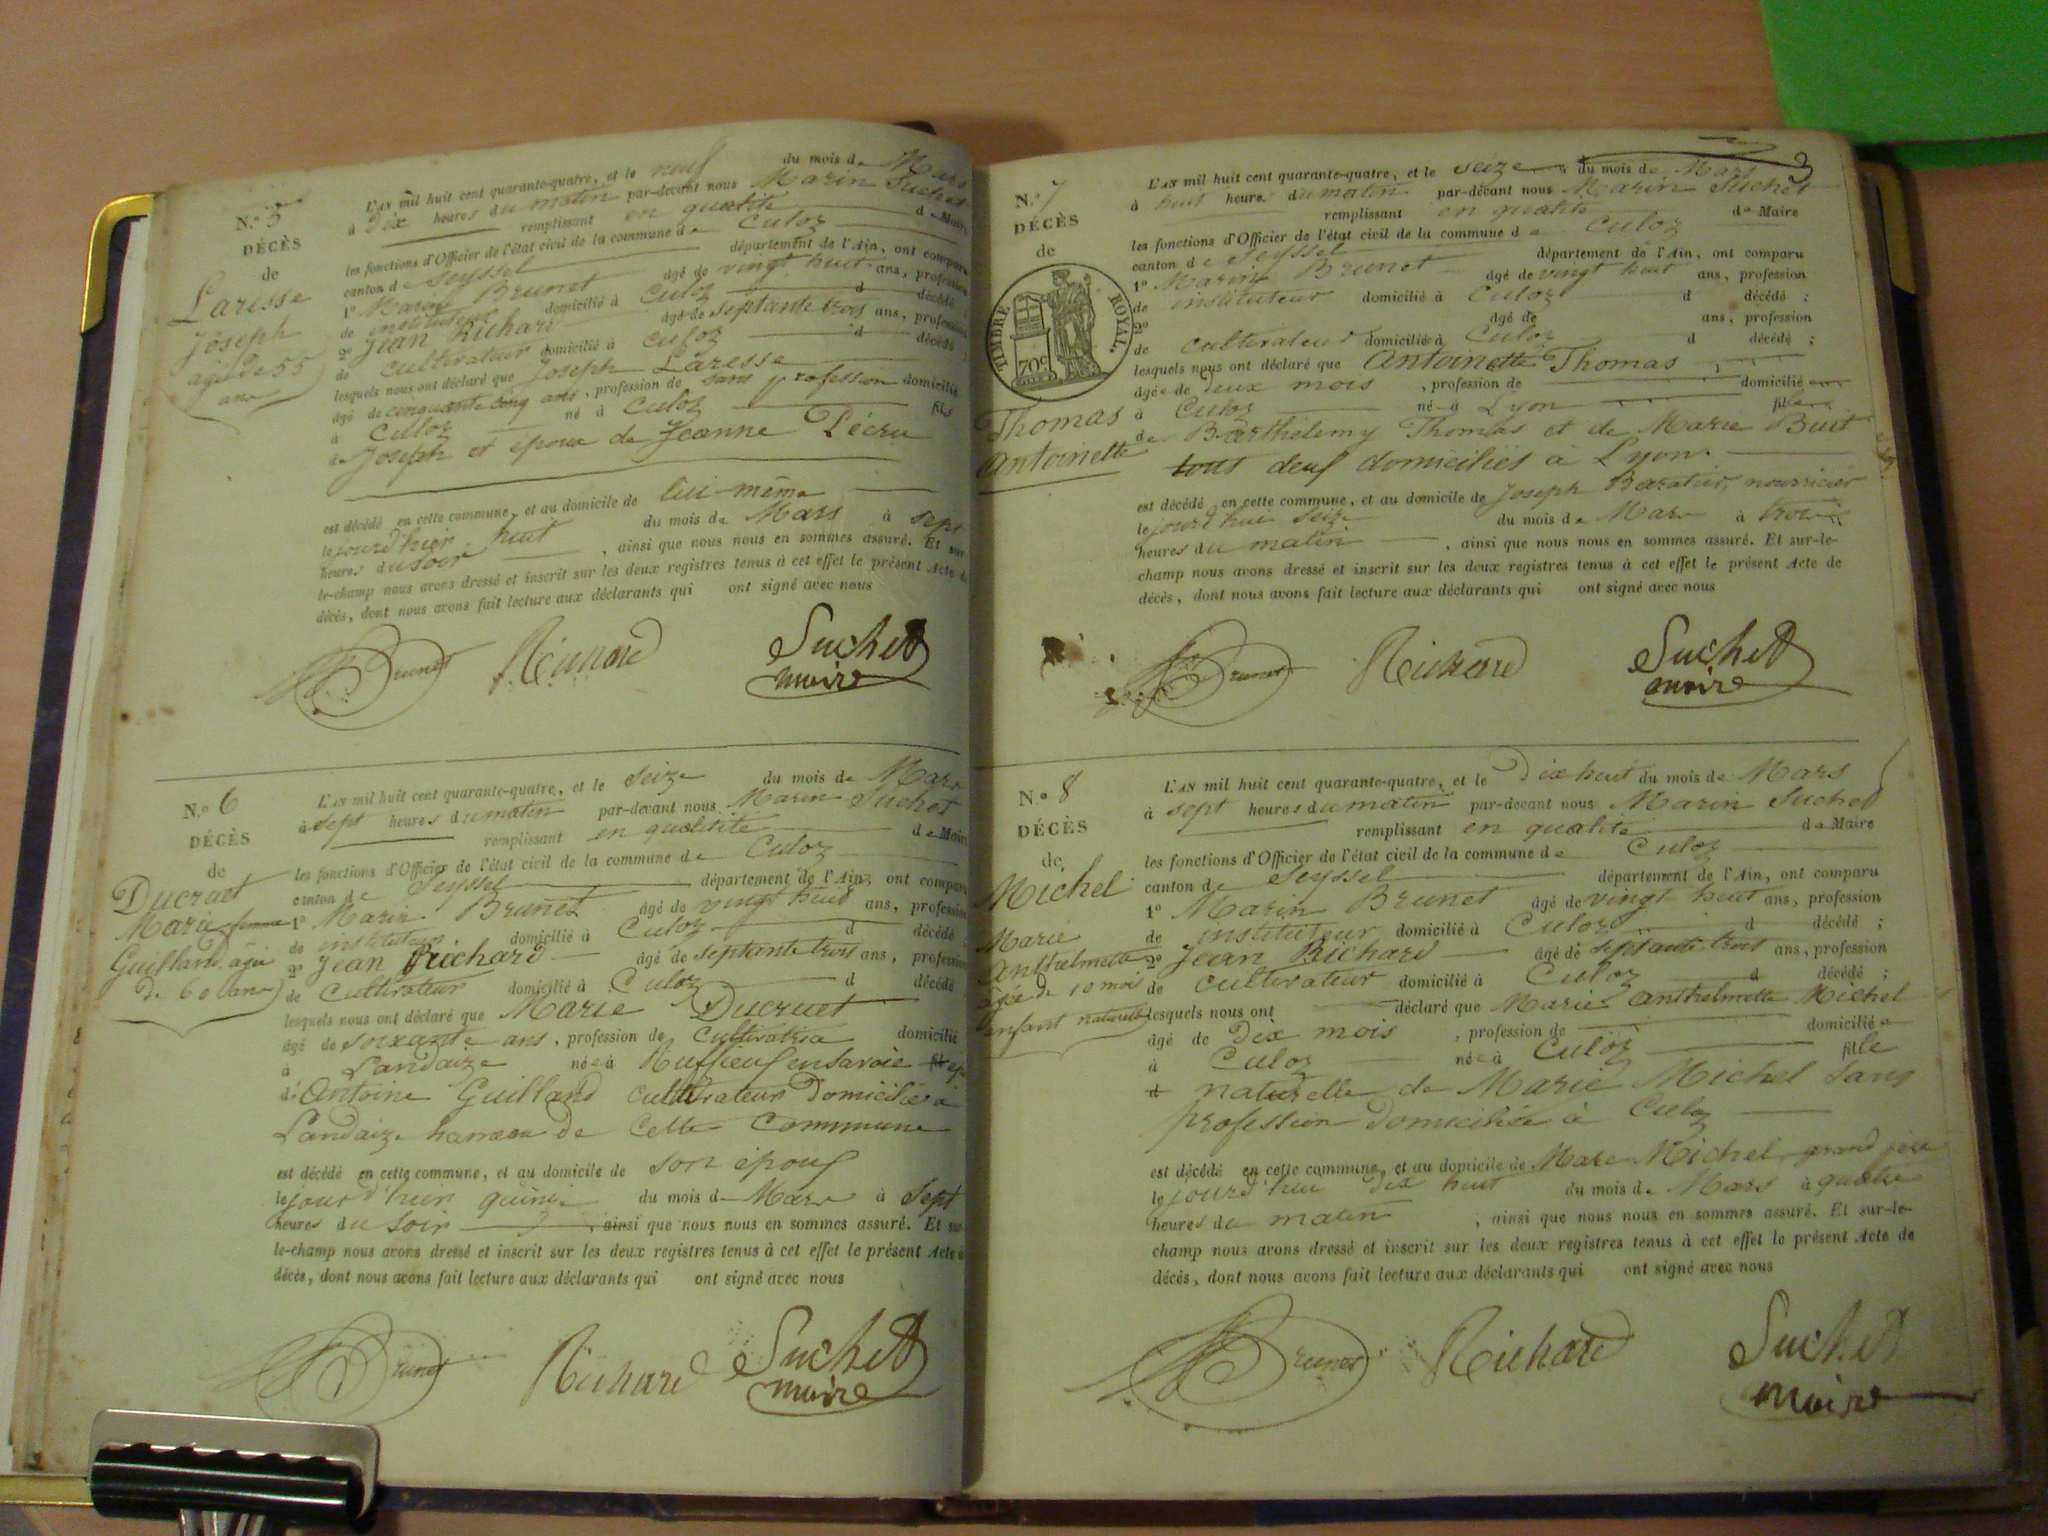 N.º 5
DÉCÈS
de
Laresse
Joseph
agé de 55
ans
L'AN mil huit cent quarante-quatre, et le neuf du mois de Mars
à Dix heures du matin par-devant nous Marin Suchet
remplissant en qualité de Maire
les fonctions d'Officier de l'état civil de la commune de Culoz
canton de Seyssel département de l'Ain, ont comparu
1º Marin Brunet âgé de vingt huit ans, profession
de instituteur domicilié à Culoz d décédé ;
2º Jean Richard âgé de septante trois ans, profession
de cultivateur domicilié à Culoz d décédé ;
lesquels nous ont déclaré que Joseph Laresse
âgé de cinquante cinq ans, profession de sans profession domicilié
à Culoz né à Culoz fils
de Joseph et epoux de Jeanne Décru
est décédé en cette commune, et au domicile de lui-même
le jourd'hier huit du mois de Mars à sept
heures du soir, ainsi que nous nous en sommes assuré. Et sur-
le-champ nous avons dressé et inscrit sur les deux registres tenus à cet effet le présent Acte de
décès, dont nous avons fait lecture aux déclarants qui ont signé avec nous
Brunet Richard Suchet
maire
N.º 6
DÉCÈS
de
Ducruet
Marie femme
Guilland agée
de 60 ans
L'AN mil huit cent quarante-quatre, et le seize du mois de Mars
à sept heures du matin par-devant nous Marin Suchet
remplissant en qualisité de Maire
les fonctions d'Officier de l'état civil de la commune de Culoz
canton de Seyssel département de l'Ain, ont comparu
1º Marin Brunet âgé de vingt huit ans, profession
de instituteur domicilié à Culoz d décédé ;
2º Jean Richard âgé de septante trois ans, profession
de Cultivateur domicilié à Culoz d décédé
lesquels nous ont déclaré que Marie Ducruet
âgé de soixante ans, profession de Cultivatrice domicilié
à Landaize née à Ruffieux en savoie
d'Antoine Guilland cultivateur Domicilié à
Landaize hameau de Cette Commune
est décédé en cette commune, et au domicile de son epoux
le jourd'hier quinze du mois de Mars à sept
heures du soir, ainsi que nous nous en sommes assuré. Et sur-
le-champ nous avons dressé et inscrit sur les deux registres tenus à cet effet le présent Acte de
décès, dont nous avons fait lecture aux déclarants qui ont signé avec nous
Brunet Richard Suchet
maire
3
N.º 7
DÉCÈS
de
TIMBRE ROYAL.
70c
Thomas
Antoinette
L'AN mil huit cent quarante-quatre, et le seize du mois de Mars
à huit heures du matin par-devant nous Marin Suchet
remplissant en qualité de Maire
les fonctions d'Officier de l'état civil de la commune de Culoz
canton de Seyssel département de l'Ain, ont comparu
1º Marin Brunet âgé de vingt huit ans, profession
de instituteur domicilié à Culoz d décédé ;
2º âgé de ans, profession
de cultivateur domicilié à Culoz d décédé ;
lesquels nous ont déclaré que Antoinette Thomas
âgée de deux mois, profession de domicilié
à Culoz né à Lyon fille
de Barthelemy Thomas et de Marie Buit
tous deux domiciliés à Lyon.
est décédé en cette commune, et au domicile de Joseph Baratier, nourricier
le jourd'hui seize du mois de Mars à trois
heures du matin, ainsi que nous nous en sommes assuré. Et sur-le-
champ nous avons dressé et inscrit sur les deux registres tenus à cet effet le présent Acte de
décès, dont nous avons fait lecture aux déclarants qui ont signé avec nous
Brunet Richard Suchet
maire
N.º 8
DÉCÈS
de
Michel
Marie
Anthelmette
âgée de 10 mois
enfant naturelle
L'AN mil huit cent quarante-quatre, et le Dix huit du mois de Mars
à sept heures du matin par-devant nous Marin Suchet
remplissant en qualité de Maire
les fonctions d'Officier de l'état civil de la commune de Culoz
canton de Seyssel département de l'Ain, ont comparu
1º Marin Brunet âgé de vingt huit ans, profession
de instituteur domicilié à Culoz d décédé ;
2º Jean Richard âgé de septante trois ans, profession
de cultivateur domicilié à Culoz d décédé ;
lesquels nous ont déclaré que Marie Anthelmette Michel
âgé de Dix mois, profession de domicilié
à Culoz née à Culoz fille
naturelle de Marie Michel sans
profession domiciliée à Culoz
est décédé en cette commune, et au domicile de Marc Michel grand père
le jourd'hui dix huit du mois de Mars à quatre
heures du matin, ainsi que nous nous en sommes assuré. Et sur-le-
champ nous avons dressé et inscrit sur les deux registres tenus à cet effet le présent Acte de
décès, dont nous avons fait lecture aux déclarants qui ont signé avec nous
Brunet Richard Suchet
maire